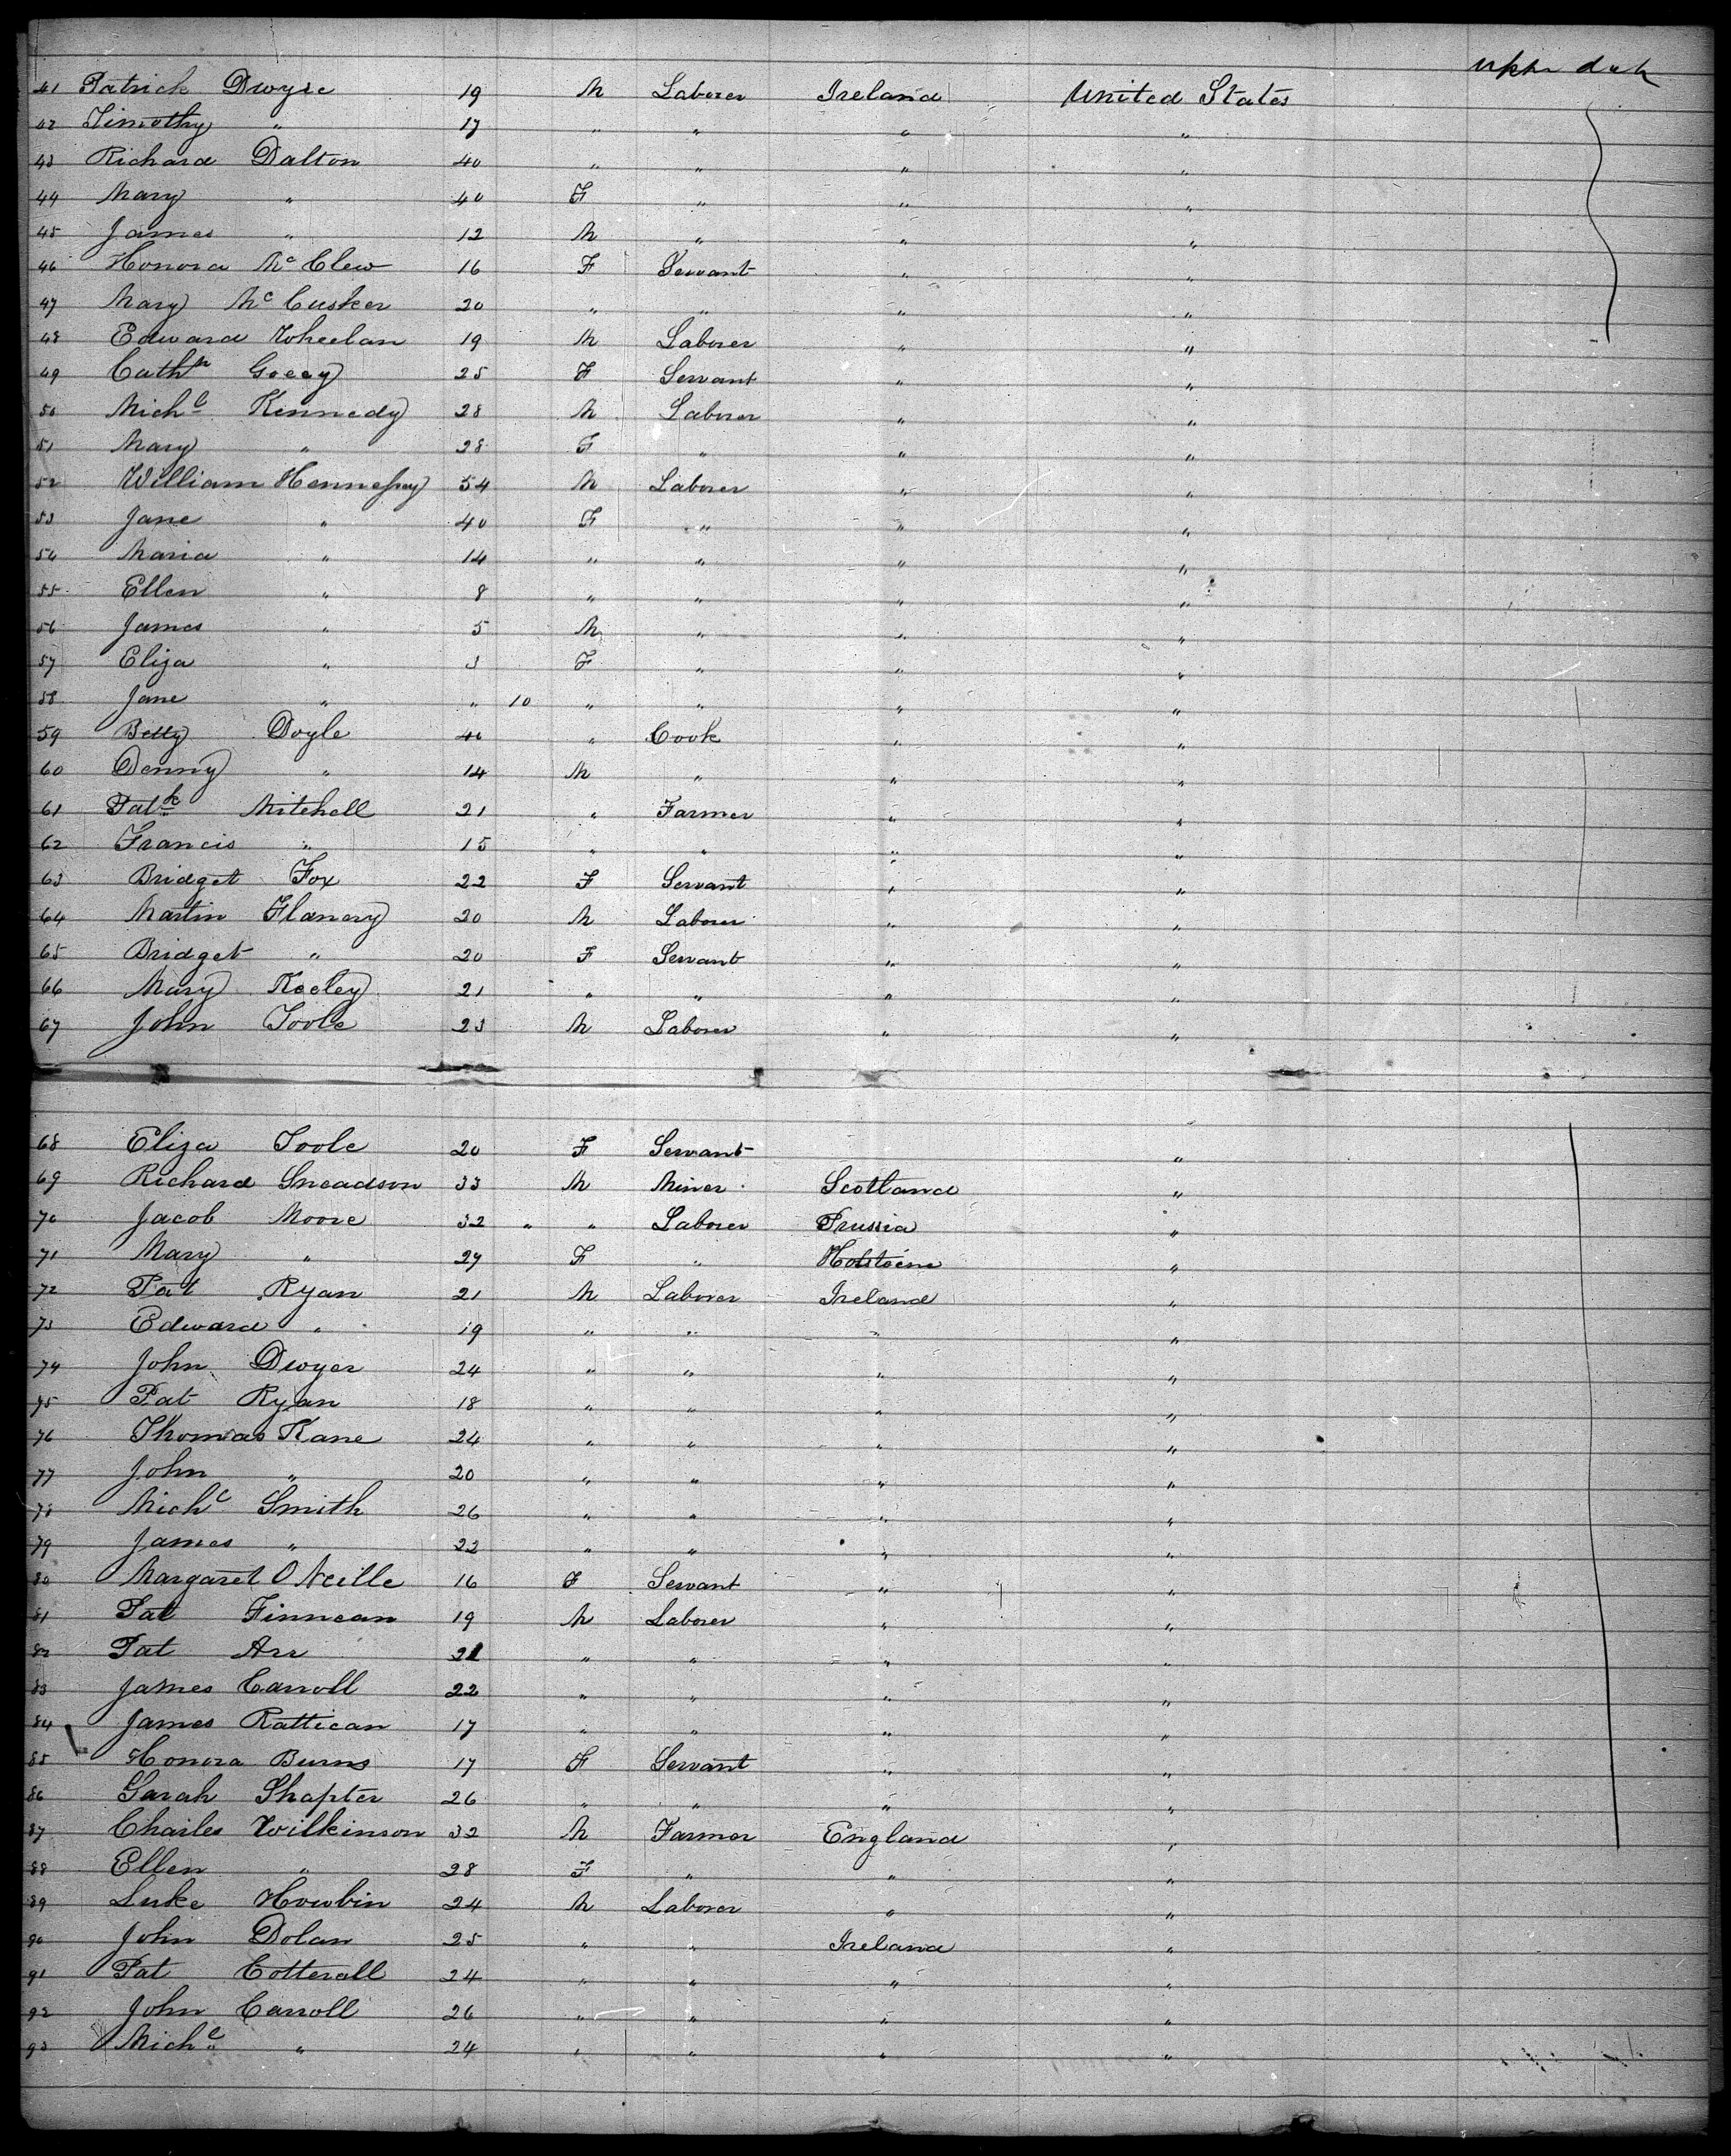 upper deck
41 Patrick Dwyre 19 M Laborer Ireland United States
42 Timothy " 17 " " " "
43 Richard Dalton 40 " " " "
44 Mary " 40 F " " "
45 James " 12 M " " "
46 Honora McClew 16 F Servant " "
47 Mary McCusker 20 " " " "
48 Edward Wheelan 19 M Laborer " "
49 Cathn 25 F Servant " "
50 Michl Kennedy 28 M Laborer " "
51 Mary " 28 F " " "
52 William Hennessy 54 M Laborer " "
53 Jane " 40 F " " "
54 Maria " 14 " " " "
55 Ellen " 8 " " " "
56 James " 5 M " " "
57 Eliza " 3 F " " "
58 Jane " " 10 " " " "
59 Betty Doyle 40 " Cook " "
60 Denny " 14 M " " "
61 Patk Mitchell 21 " Farmer " "
62 Francis " 15 " " " "
63 Bridget Fox 22 F Servant " "
64 Martin Flanery 20 M Laborer " "
65 Bridget " 20 F Servant " "
66 Mary Keeley 21 " " " "
67 John Toole 23 M Laborer " "
"
68 Eliza Toole 20 F Servant "
69 Richard Sneadson 33 M Miner Scotland "
70 Jacob Moore 32 " " Laborer Prussia "
71 Mary " 27 F " Holstein "
72 Pat Ryan 21 M Laborer Ireland "
73 Edward " 19 " " " "
74 John Dwyer 24 " " " "
75 Pat Ryan 18 " " " "
76 Thomas Kane 24 " " " "
77 John " 20 " " " "
78 Michl Smith 26 " " " "
79 James " 22 " " " "
80 Margaret O Neille 16 F Servant " "
81 Pat Finnean 19 M Laborer " "
82 Pat Arr 21 " " " "
83 James Carroll 22 " " " "
84 James Rattican 17 " " " "
85 Honora Burns 17 F Servant " "
86 Sarah Shapter 26 " " " "
87 Charles Wilkinson 32 M Farmer England "
88 Ellen " 28 F " " "
89 Luke Howbin 24 M Laborer " "
90 John Dolan 25 " " Ireland "
91 Pat Cotterall 24 " " " "
92 John Carroll 26 " " " "
93 Michl " 24 " " " "